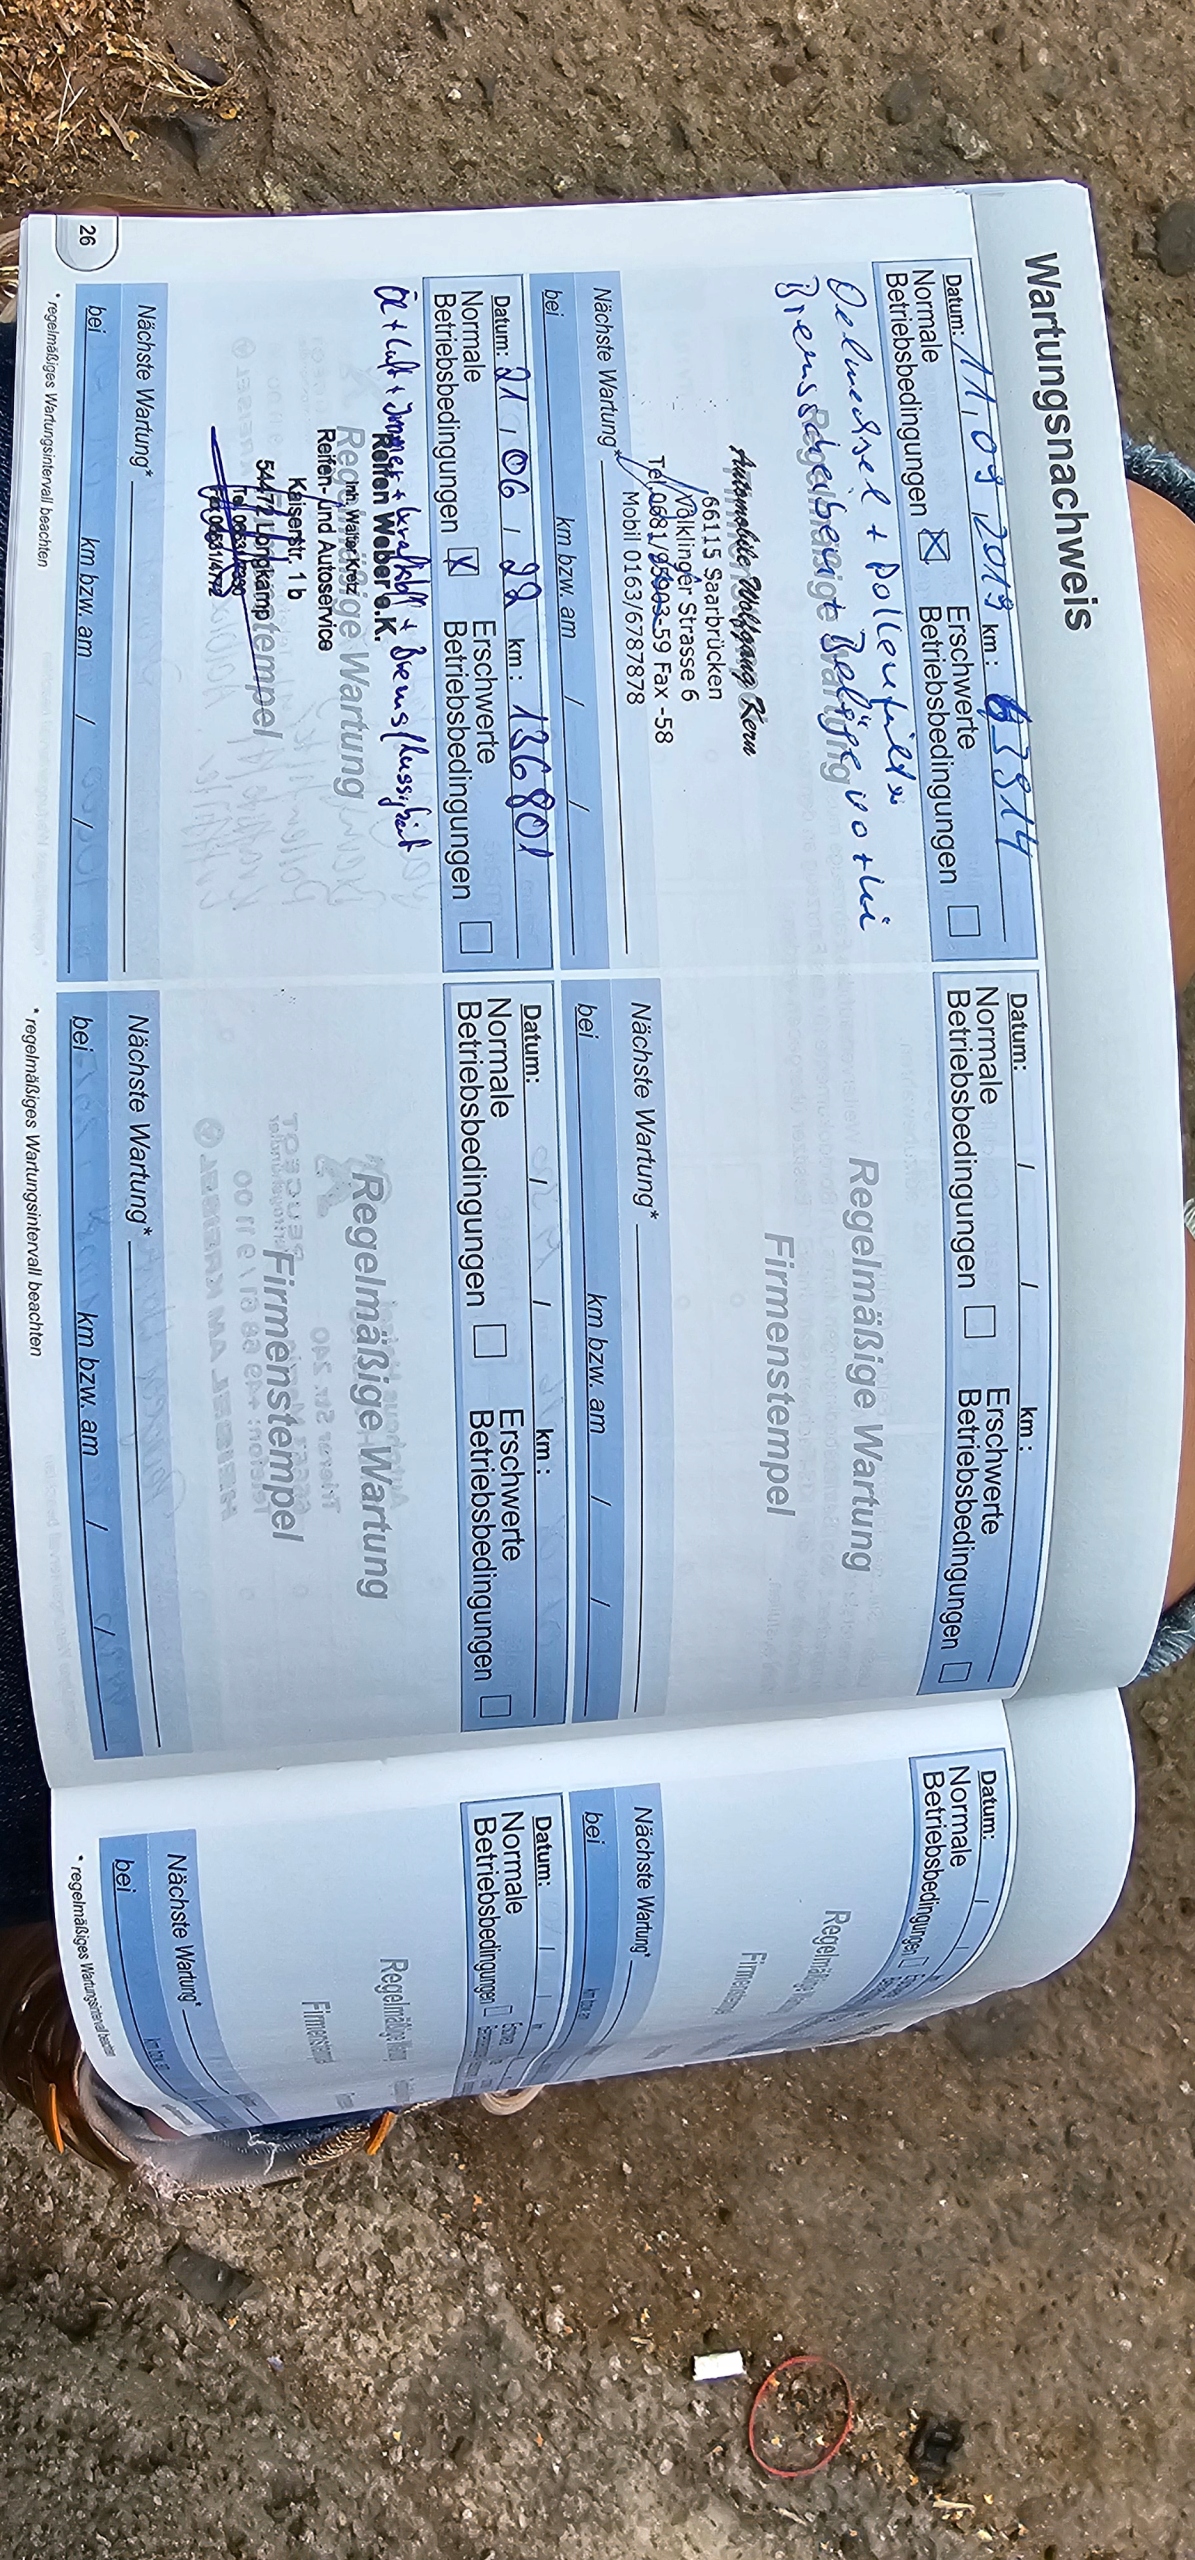 Wartungsnachweis
Datum: 11.09.2019 km: 63914
Normale Betriebsbedingungen ☒ Erschwerte Betriebsbedingungen ☐
Oelwechsel + Pollenfilter
Bremsscheiben + Beläge vo + hi
Regelmäßige Wartung
Automobile Wolfgang Kern
66115 Saarbrücken
Völklinger Strasse 6
Tel. 0681/ -59 Fax -58
Mobil 0163/6787878
Nächste Wartung*
bei km bzw. am / /
Datum: 21.06.22 km: 136801
Normale Betriebsbedingungen ☒ Erschwerte Betriebsbedingungen ☐
Öl + Luft + Innen + Kraftstoff + Bremsflüssigkeit
Regelmäßige Wartung
Reifen Weber e.K.
Inh. Walter Kretz
Reifen- und Autoservice
Kaiserstr. 1 b
54472 Longkamp
Firmenstempel
Nächste Wartung*
bei km bzw. am / /
26
* regelmäßiges Wartungsintervall beachten
Datum: / / km:
Normale Betriebsbedingungen ☐ Erschwerte Betriebsbedingungen ☐
Regelmäßige Wartung
Firmenstempel
Nächste Wartung*
bei km bzw. am / /
Datum: / / km:
Normale Betriebsbedingungen ☐ Erschwerte Betriebsbedingungen ☐
Regelmäßige Wartung
Firmenstempel
Nächste Wartung*
bei km bzw. am / /
* regelmäßiges Wartungsintervall beachten
Datum: / /
Normale Betriebsbedingungen ☐
Regelmäßige
Firmenstempel
Nächste Wartung*
bei km bzw. am
Datum: / /
Normale Betriebsbedingungen ☐
Regelmäßige
Firmenstempel
Nächste Wartung*
bei km bzw. am
* regelmäßiges Wartungsintervall beachten